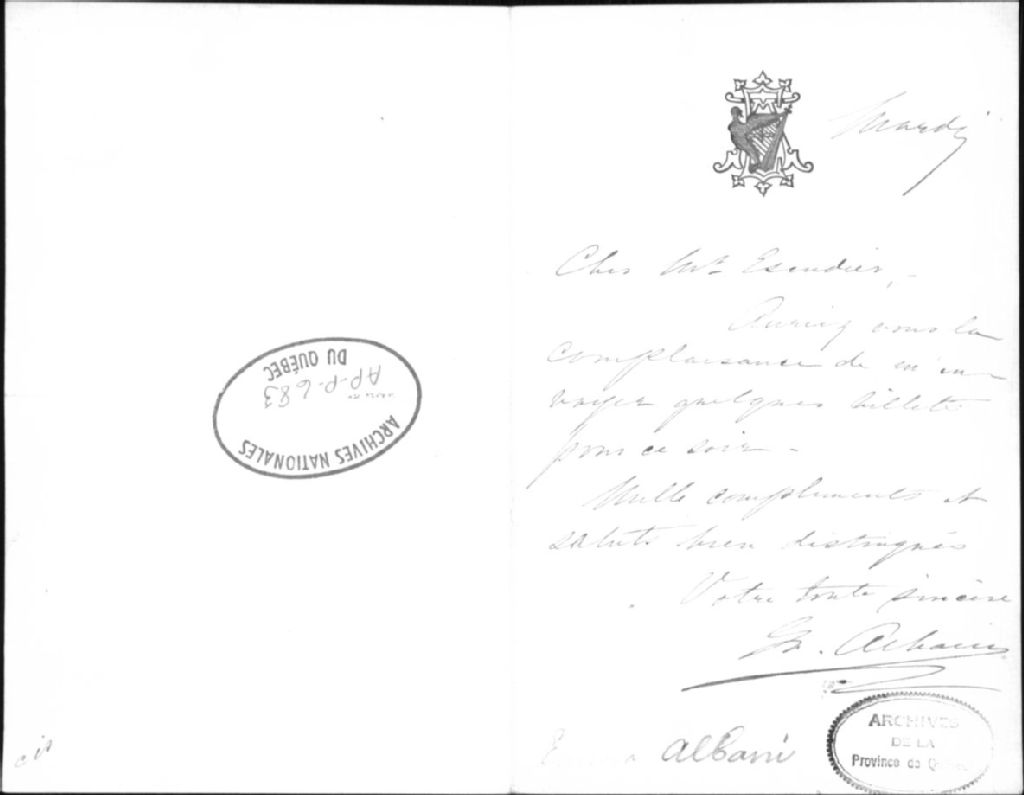 DU QUÉBEC
AP-P-683
ARCHIVES NATIONALES
Mardi
Cher Mr. Escudier,
Auriez vous la
complaisance de m'en-
voyer quelques billets
pour ce soir -
Mille compliments et
saluts bien distingués
Votre toute sincère
E. Albani
Emma Albani
ARCHIVES
DE LA
Province de Québec